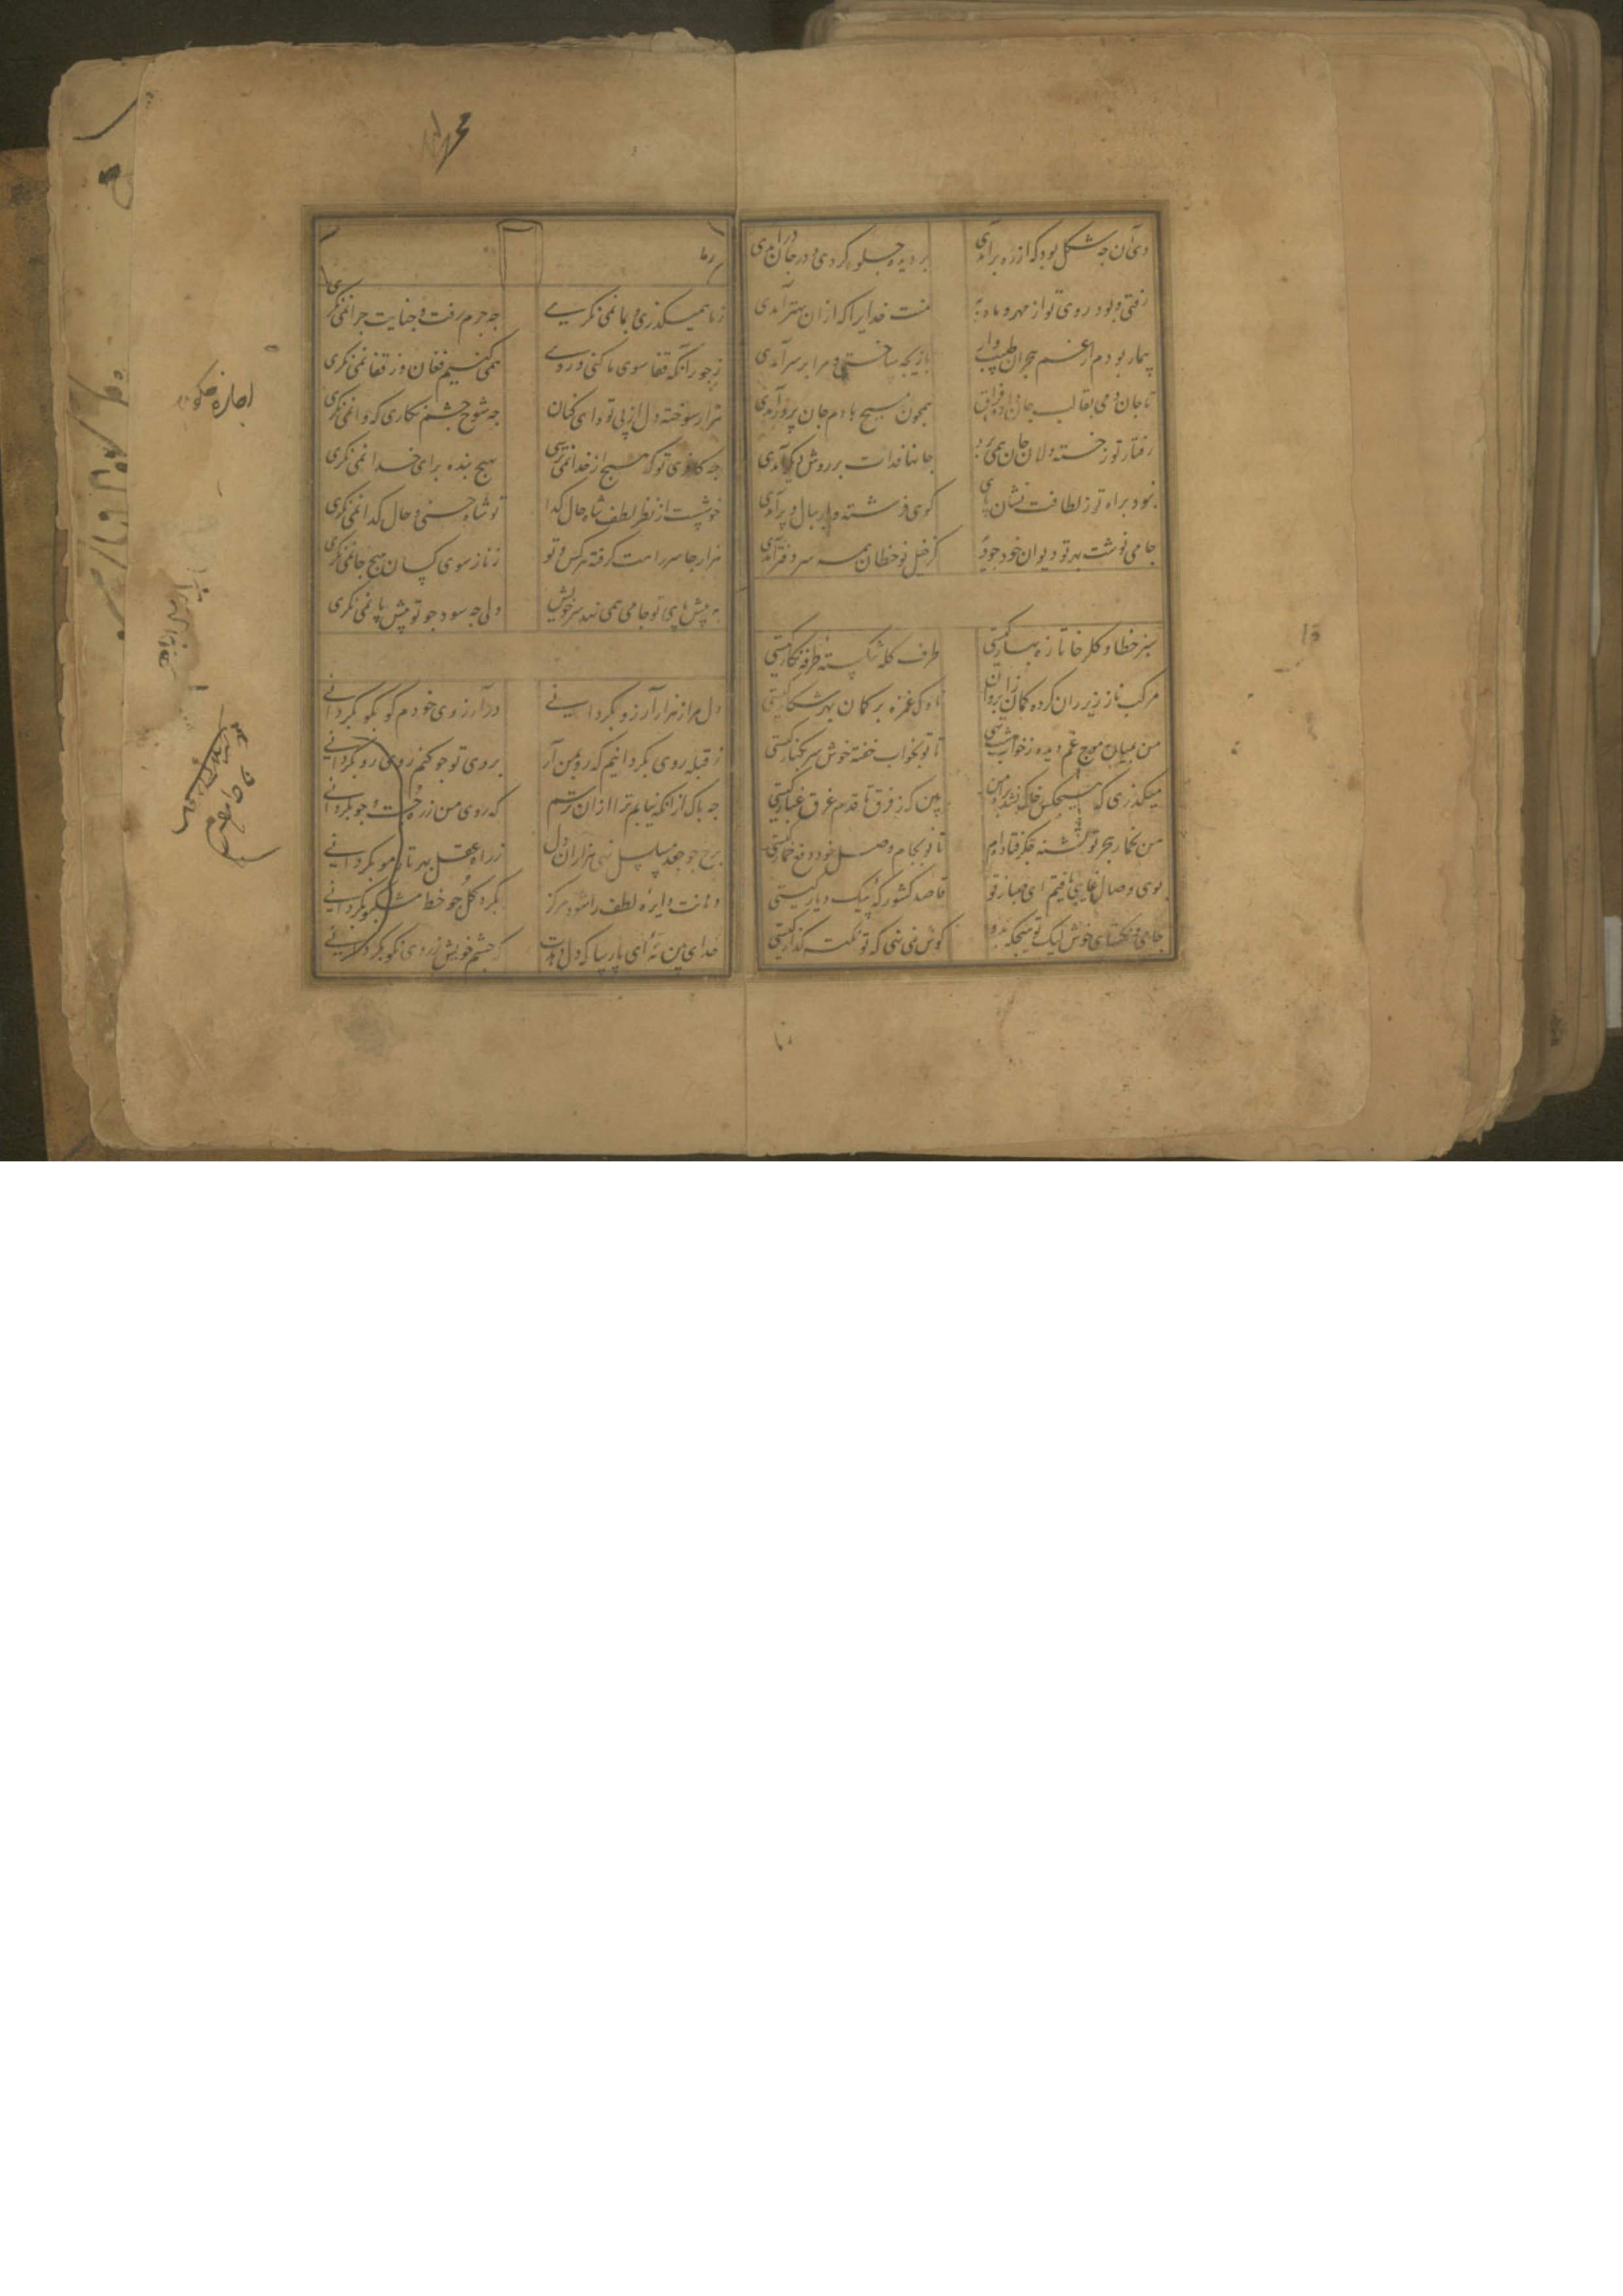 دی آن چه شکل بود که از ره برآمدی بر دیده جلوه کردی و در جان درآمدی
رفتی و بود روی تو از مهر و ماه به منت خدایرا که ازان بهتر آمدی
بیمار بودم از غم هجران طبیب وار
تا جان دمی بقالب همچون مسیح با دم جان پرور آمدی
رفتار تو ز خسته دلان جان همی برد جانها فدات بر روش دیگر آمدی
نبود براه تو ز لطافت نشان پای گوی فرشته بال و پر آمدی
جامی نوشت بهر تو دیوان خود چو دید کز خیل نوخطان همه سر دفتر آمدی
سبز خطا و گلرخا تازه بهار کیستی طرف کله شکسته طرفه نگار کیستی
مرکب ناز زیر ران کرده کمان ز ابروان ناوک غمزه بر کمان بهر شکار کیستی
من بمیان موج غم دیده ز خواب شسته تا تو بخواب خفته خوش سر بکنار کیستی
میگذری که هیچکس خاک نشد براه من بین که ز فرق تا قدم غرق غبار کیستی
من بخمار هجر تو تشنه جگر فتاده‌ام تا تو بجام وصل خود دفع خمار کیستی
بوی وصال یافتم ای صبا ز تو قاصد کشور که پیک دیار کیستی
جامی و نکتهای خوش لیک تو هیچگه نهٔ گوش نمی نهی که تو نکته گذار کیستی
ز ما همیگذری و بما نمی نگری چه جرم رفت و جنایت چرا نمی نگری
ز جور آنکه قفا سوی ما کنی و روی همی کنیم فغان وز قفا نمی نگری
هزار سوخته دل از پی تو وای کنان چه شوخ چشم نگاری که وا نمی نگری
چه کافری تو که هیچ از خدا نمی ترسی بهیچ بنده برای خدا نمی نگری
خوشست از نظر لطف شاه حال گدا تو شاه حسنی و حال گدا نمی نگری
هزار جا سر راهت گرفته هر کس و تو ز ناز سوی کسان هیچ جا نمی نگری
به پیش پای تو جامی همی نهد سر خویش ولی چه سود چو تو پیش پا نمی نگری
دل مرا ز هزار آرزو بگردانی در آرزوی خودم کو بکو بگردانی
ز قبله روی بگردانیم که رو بمن آر بروی تو چو کنم روی رو بگردانی
چه باک از انکه نیابم ترا ازان ترسم که روی من ز ره جست و جو بگردانی
برخ چو جعد مسلسل نهی هزاران دل ز راه عقل بهر تار مو بگردانی
دهانت دایرهٔ لطف را شود مرکز بگرد گل چو خط مشکبو بگردانی
خدای من نهٔ ای پارسا که دل دهدت که چشم خویش ز روی نکو بگردانی